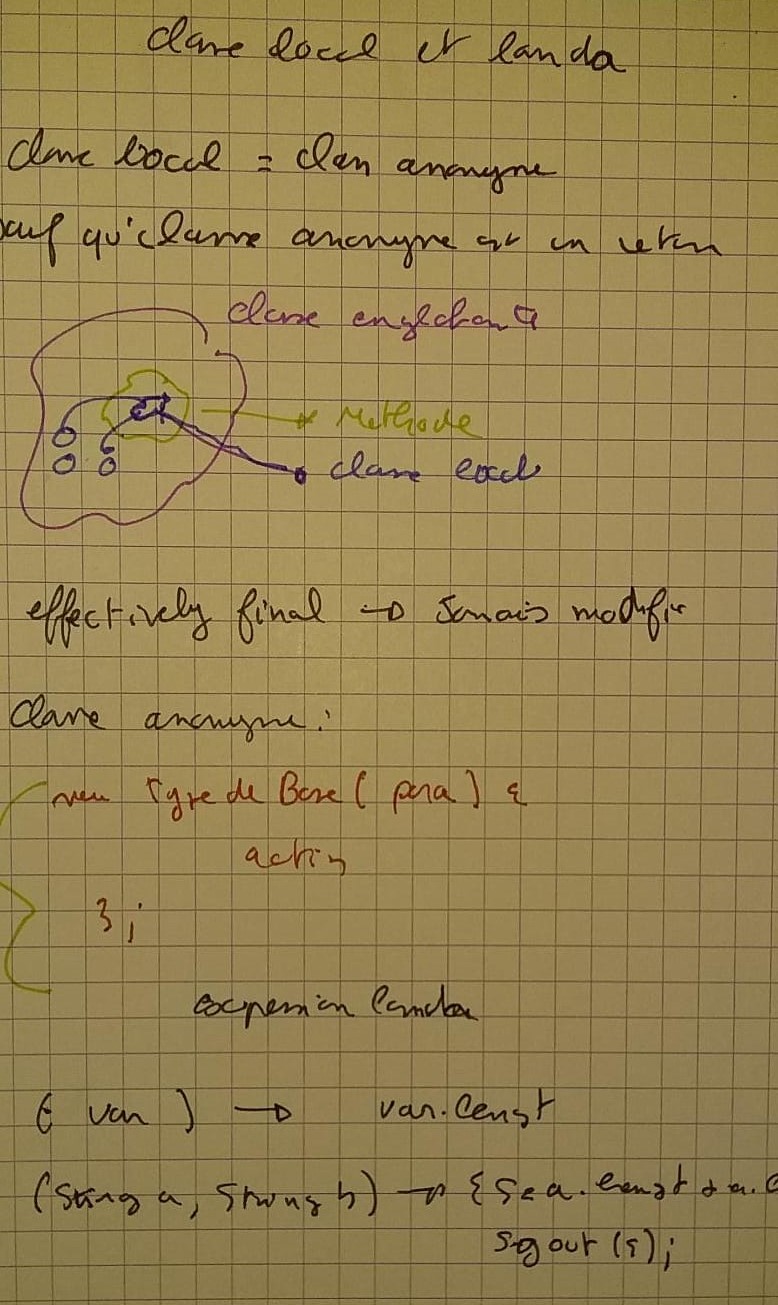 classe local et lamda
classe local = class anonyme
sauf qu'classe anonyme est un
classe englobant
Methode
classe local
effectively final → Jamais modifier
classe anonyme :
new Type de Base ( para ) {
action
};
expression lambda
( var ) → var.lengt
(String a, String b) → { S = a.lengt + a.
sysout (s);